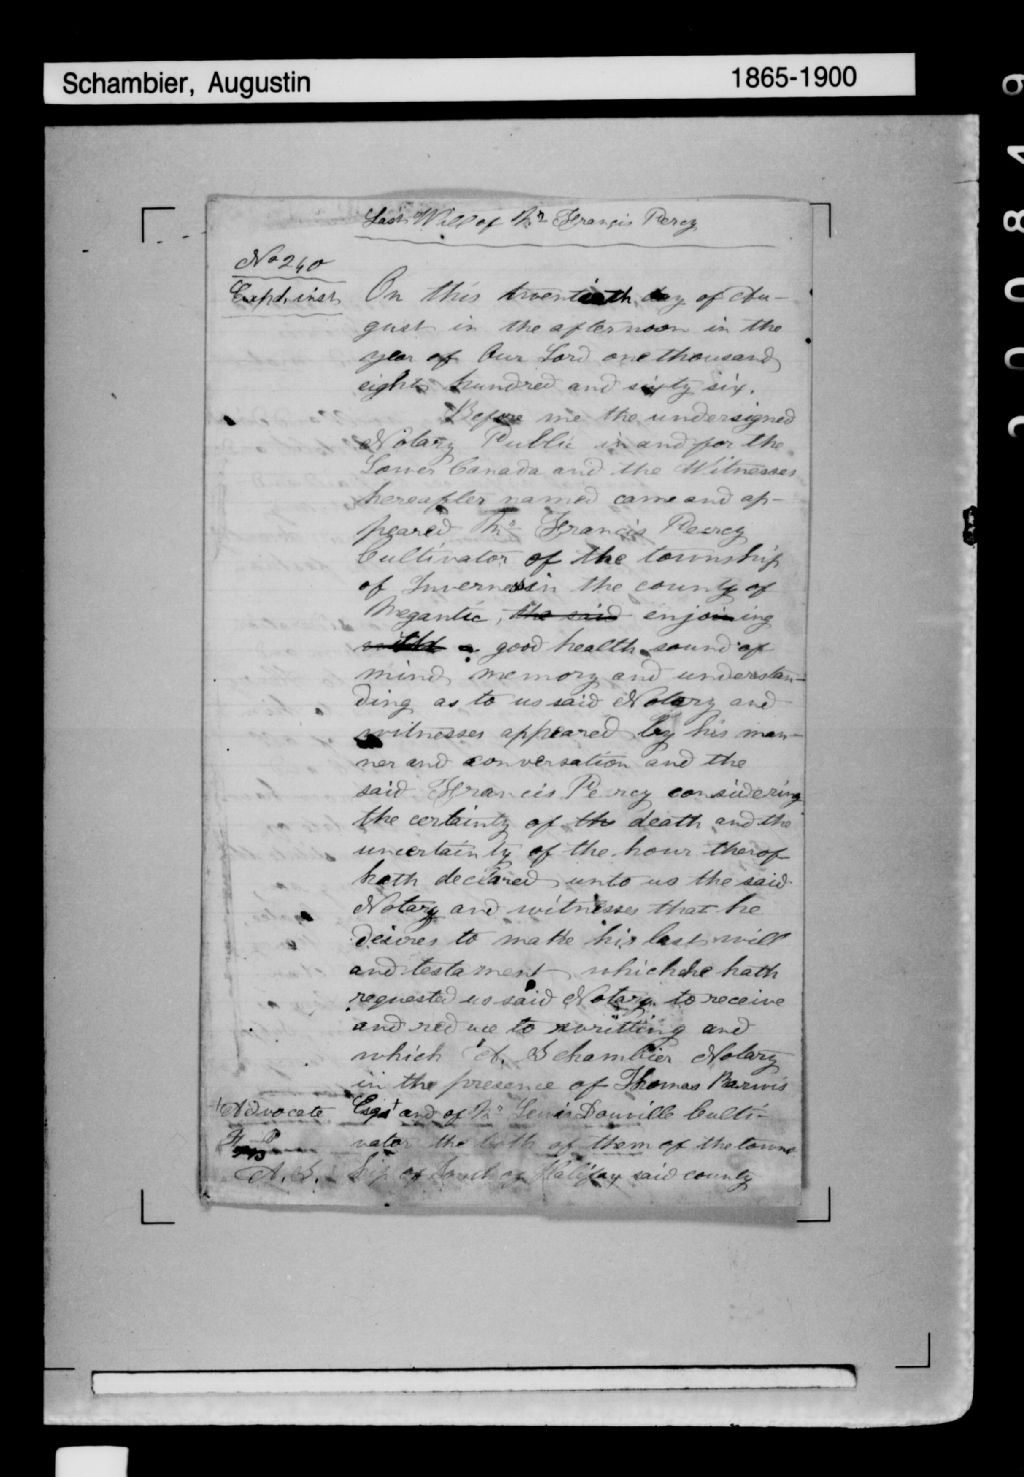 Schambier, Augustin 1865-1900
Last Will of Mr Francis Percy
No 240
Expd. inst.
On this twentieth day of Au-
gust in the afternoon in the
year of Our Lord one thousand
eight hundred and sixty six.
Before me the undersigned
Notary Public in and for the
Lower Canada and the Witnesses
hereafter named came and ap-
peared Mr Francis Percy
Cultivator of the township
of Inverness in the county of
Megantic, the said enjoining
with a good health sound of
mind, memory and understan-
ding as to us said Notary and
witnesses appeared by his man-
ner and conversation and the
said Francis Percy considering
the certainty of the death and the
uncertainty of the hour therof
hath declared unto us the said
Notary and witnesses that he
desires to make his last will
and testament which he hath
requested us said Notary to receive
and reduce to writting and
which A. Schambier Notary
in the presence of Thomas Barwis
Advocate
Esqr + and of Mr Lewis Douville Culti-
F P
vator the both of them of the town
A. S.
ship of South of Halifax said county